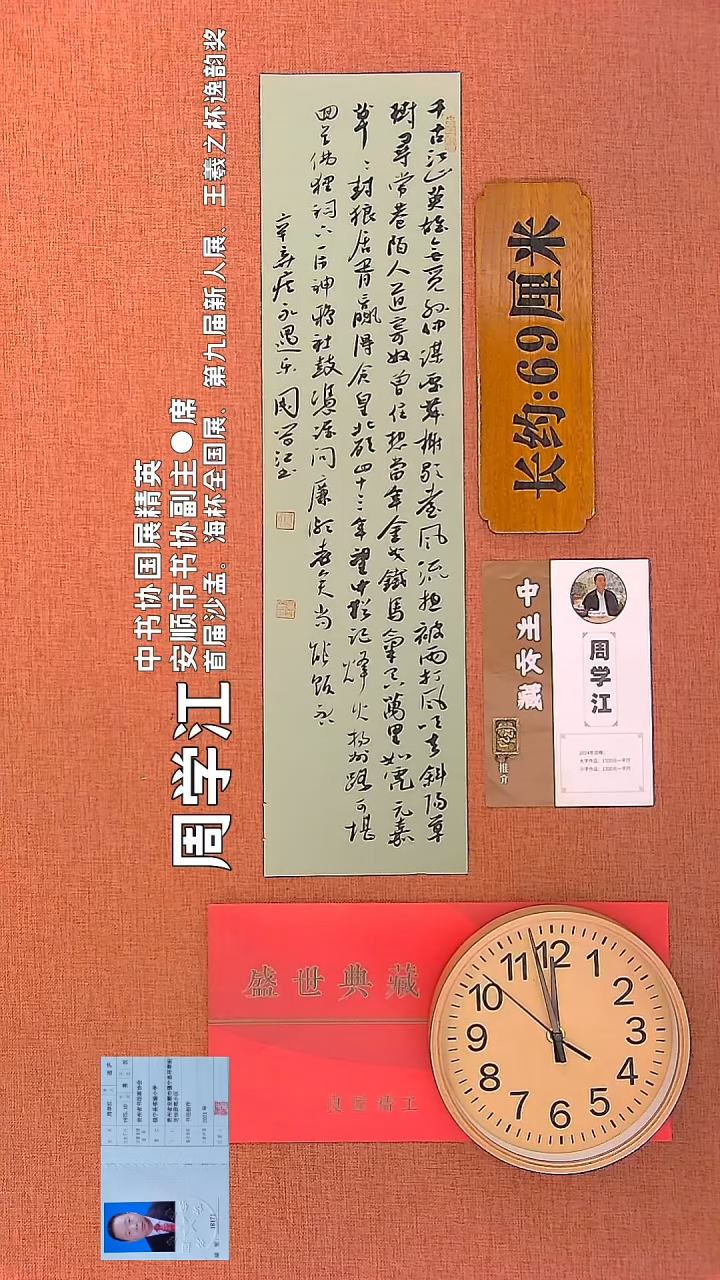 中书协国展精英
安顺市书协副主●席
首届沙孟。海杯全国展、第九届新人展、王羲之杯逸韵奖
周学江
千古江山英雄无觅孙仲谋处舞榭歌台风流总被雨打风吹去斜阳草
樹尋常巷陌人道寄奴曾住想當年金戈鐵馬氣吞萬里如虎元嘉
草〻封狼居胥赢得仓皇北顾四十三年望中犹记烽火扬州路可堪
回首佛狸祠下一片神鸦社鼓凭谁问廉颇老矣尚能饭否
辛弃疾永遇乐 周学江书
长约:69厘米
中州收藏
推介
周学江
盛世典藏
良品精工
12
1
2
3
4
5
6
7
8
9
10
11